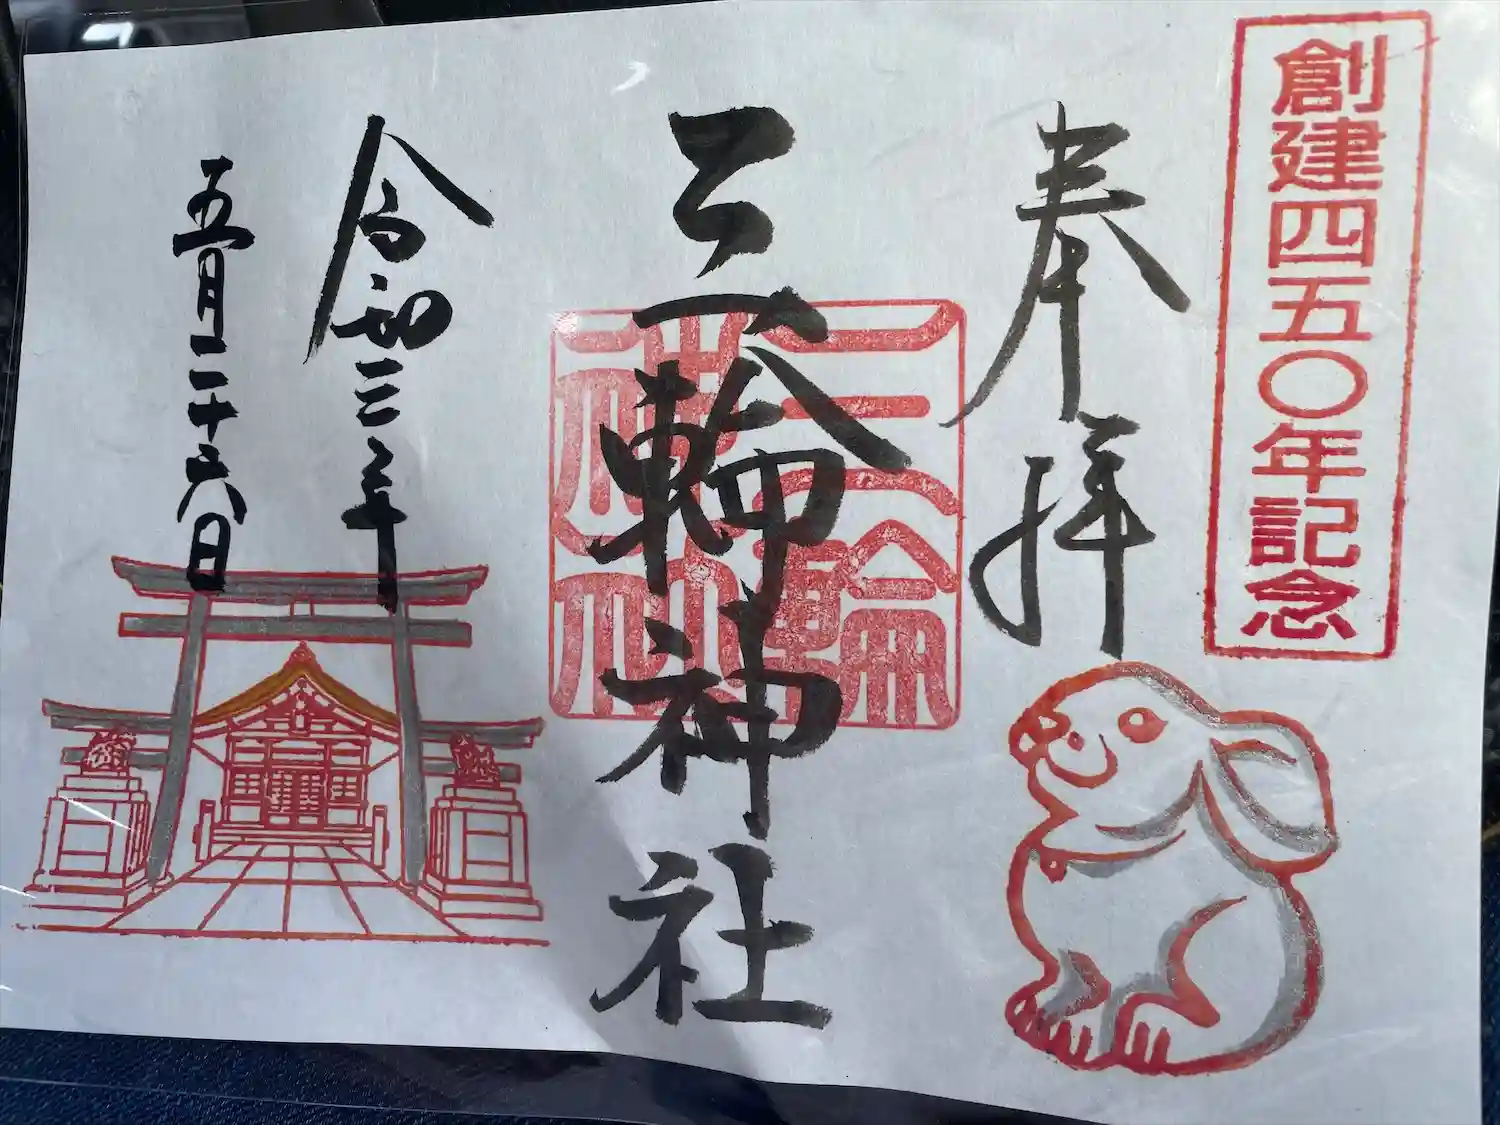 創建四五〇年記念
奉拝
三輪神社
三輪神社
令和三年
五月二十六日